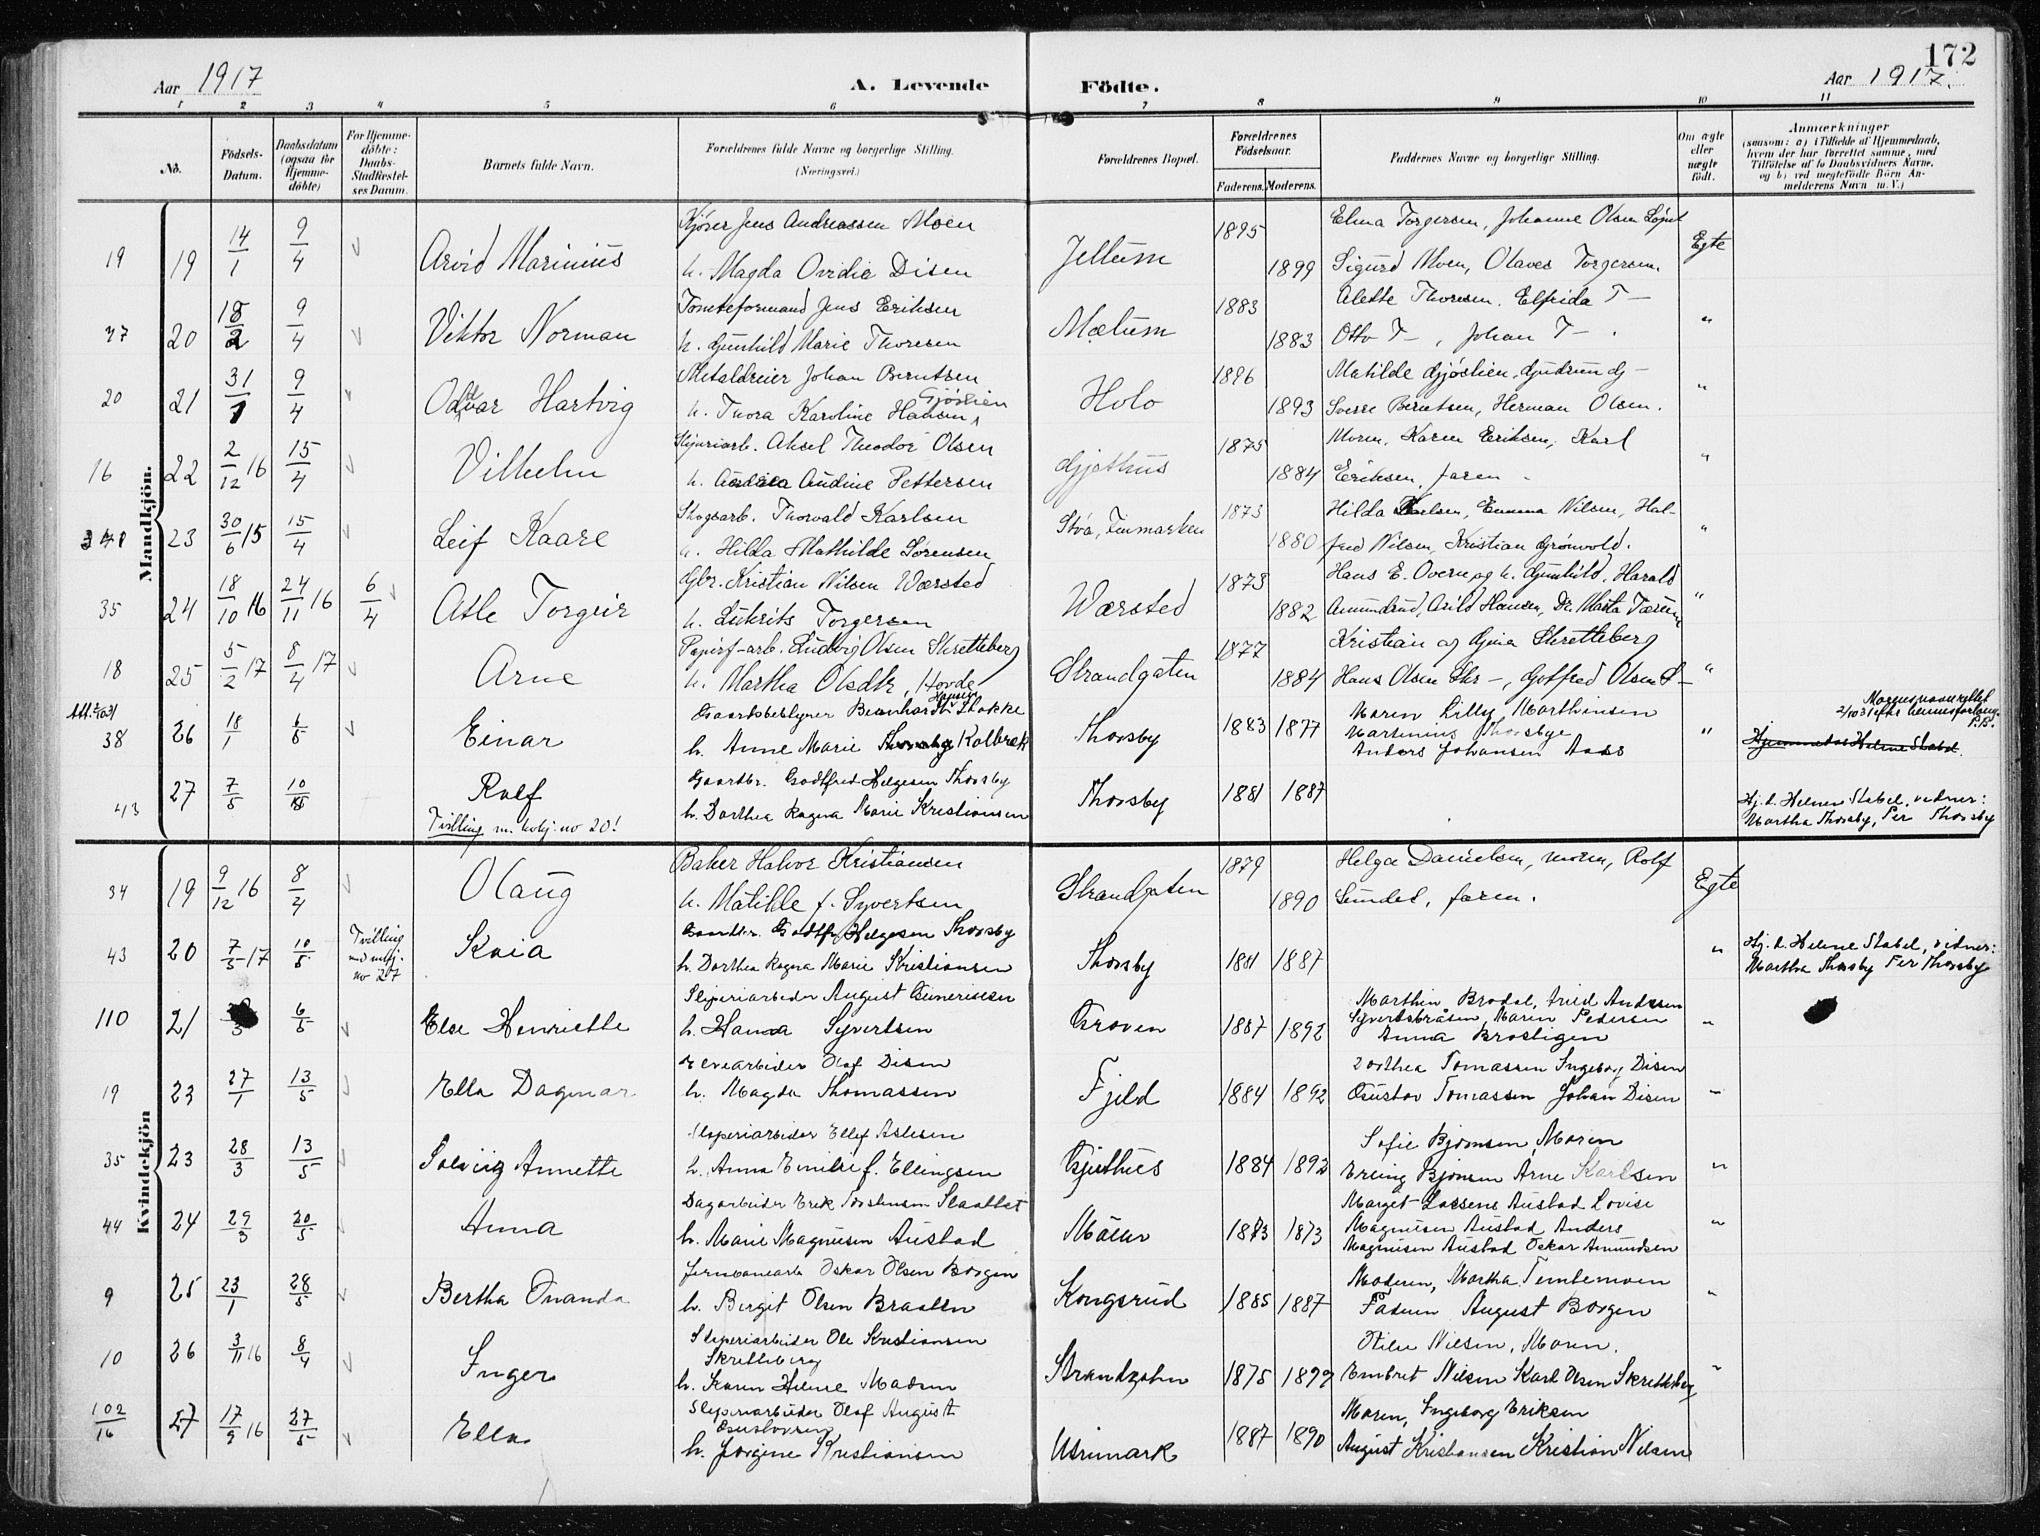 172
Aar 1917
A. Levende
Födte.
Aar 1917.
1 2 3 4 5 6 7 8 9 10 11
No.
Födsels-Datum.
Daabsdatum (ogsaa för Hjemme-döbte)
For Hjemme-döbte: Daabs-Stadfæstel-ses Datum.
Barnets fulde Navn.
Forældrenes fulde Navne og borgerlige Stilling.
(Næringsvei.)
Forældrenes Bopæl.
Forældrenes Födselsaar.
Faderens. Moderens.
Faddernes Navne og borgerlige Stilling.
Om ægte eller uægte födt.
Anmærkninger
(saasom: a) i Tilfælde af Hjemmedaab, hvem der har forrettet samme, med Tilföielse af to Daabsvidners Navne, og b) ved uægtefödte Börn Anmelderens Navn m. V.)
Mandkjön.
19 19 14/1 9/4 Arvid Marinius
Kjører Jens Andreassen Moen
h. Magda Ovidia Disen
Jellum 1895 1899
Elma Torgersen, Johanne Olsen
Sigurd Moen, Olaves Torgersen.
Egte
20 18/2 9/4 Viktor Norman
Tomteformand Jens Eriksen
h. Gunhild Marie Thoresen
Mælum 1883 1883
Alette Thoresen. Elfrida T —
Otto T —, Johan T — .
"
20 21 31/1 9/4 Oddvar Hartvig
Metaldreier Johan Berntsen
Gjøslien
h. Thora Karoline Hansen
Holo 1896 1893
Matilde Gjøslien, Gudrun Gj —
Sverre Berntsen, Herman Olsen.
"
16 22 2/12 16 15/4 Vilhelm
Sliperiarb. Aksel Theodor Olsen
h. Audine Pettersen
Gjethus 1875 1884
Moren, Karen Eriksen, Karl
Eriksen, faren
"
23 30/6 15 15/4 Leif Kaare
Skogsarb. Thorvald Karlsen
h. Hilda Mathilde Sørensen
Stva, Finmarken 1873 1880
Hilda Karlsen, Emma Nilsen, Hal-
fred Nilsen, Kristian Grønvold.
"
35 24 18/10 16 24/11 16 6/4 Atle Torgeir
Gbr. Kristian Nilsen Wærsted
h. Lukrits Torgersen
Wærsted 1873 1882
Hans E. Overn og h. Gunhild. Harald
Amundrud, Arild Hansen,
"
18 25 5/2 17 8/4 17 Arne
Papirf-arb. Ludvig Olsen Skretteberg
h. Martha Olsdtr, Hovde
Strandgaten 1877 1884
Kristian og Gina Skretteberg
Hans Olsen Skr —, Gotfred Olsen S —
"
38 26 18/1 6/5 Einar
Gaardsbestyrer Bernhard Hansen Stokke
h. Anne Marie Kolbræk
Thorsby 1883 1877
Maren Lilly Marthinsen
Martinius Thorsbye
Anders Johansen Aass
"
Hjemmedøbt Helene Stabel
43 27 7/5 10/5 Rolf
Tvilling m. kvkj. no 20!
Gaardbr. Godtfred Helgesen Thorsby
h. Dorthea Ragna Marie Kristiansen
Thorsby 1881 1887
Hj. d. Helene Stabel, vidner:
Martha Thorsby, Per Thorsby
Kvindekjön
34 19 9/12 16 8/4 Olaug
Baker Halvor Kristiansen
h. Matilde f. Syvertsen
Strandgaten 1879 1890
Helga Danielsen, moren, Rolf
Sundet, faren.
Egte
43 20 7/5 17 10/5 Tvilling med mkj. no 27
Kaia
Gaardbr. Godtfr Helgesen Thorsby
h. Dorthea Ragna Marie Kristiansen
Thorsby 1881 1887
"
Hj. d. Helene Stabel, vidner:
Martha Thorsby Per Thorsby
110 21 6/5 Else Henriette
Sliperiarbeider August Gunerissen
h. Hanna Syvertsen
Groven 1887 1892
Marthin Brodal, Arvid Andersen
Syvertsbråten, Maren Pedersen
Anna Brostigen
"
19 23 27/1 13/5 Ella Dagmar
Elvearbeider Olaf Disen
h. Magda Thomassen
Fjeld 1884 1892
Dorthea Tomassen Ingeborg Disen
Gustav Tomassen Johan Disen
"
35 23 28/3 13/5 Solveig Annette
Sliperiarbeider Ellef Aslesen
h. Anna Emilie f. Ellingsen
Gjethus 1884 1892
Sofie Bjørnsen, Moren
Erling Bjønsen Arne Karlsen
"
44 24 29/3 20/5 Anna
Dagarbeider Erik Torstensen Slaattet
h. Marie Magnusen Austad
1873 1873
Marget Larsens Austad Lovise
Magnusen Austad Anders
Magnusen Austad Oskar Amundsen
"
9 25 23/1 28/5 Bertha Onanda
Oskar Olsen Borgen
h. Birgit Olsen Braaten
Kongsrud 1885 1887
Moderen, Martha Tømtemoen
Faderen August Borgen
"
10 26 3/11 16 8/4 Inger
Sliperiarbeider Ole Kristiansen
Skretteberg
h. Karen Helene Madsen
Strandgaten 1875 1899
Otilie Nilsen, Moren.
Embret Nilsen Karl Olsen Skretteberg
"
102/16 27 17/9 16 27/5 Ella
Sliperiarbeider Olaf August
Gustavsen
h. Jørgine Kristiansen
Utsimark 1887 1890
Moren, Ingeborg Eriksen
August Kristiansen Kristian Nilsen